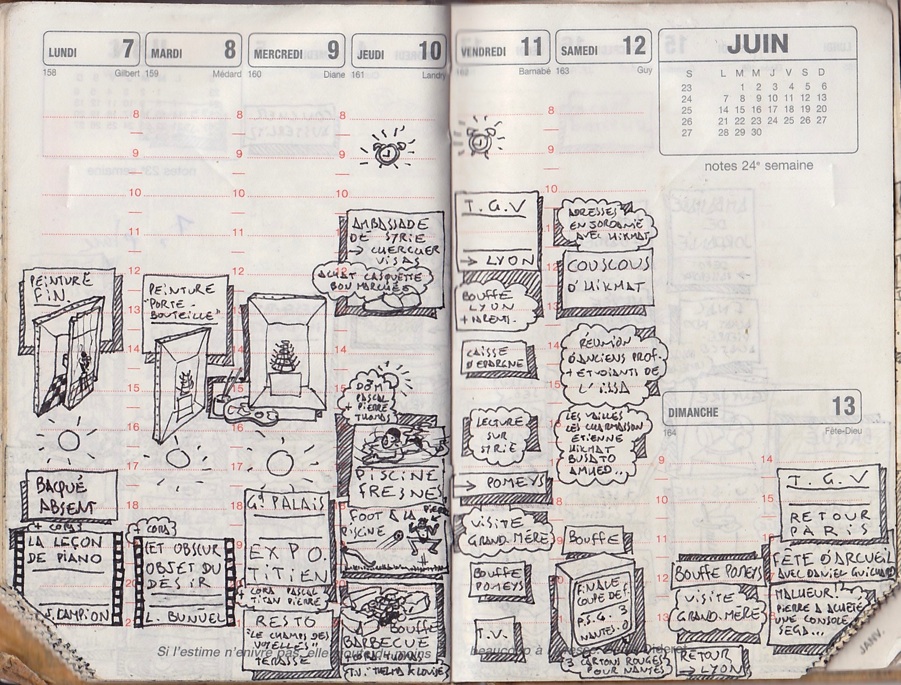 LUNDI 7
158 Gilbert
PEINTURE
FIN.
BAQUÉ
ABSENT
+ CORA
LA LEÇON
DE PIANO
J. CAMPION
MARDI 8
159 Médard
PEINTURE
"PORTE-
BOUTEILLE"
+ CORA
CET OBSCUR
OBJET DU
DESIR
L. BUNUEL
MERCREDI 9
160 Diane
Gd PALAIS
EXPO.
TITIEN
CORA PASCAL
TIAN PIERRE
RESTO
"LE CHAMPS DES
TERASSE
JEUDI 10
161 Landry
AMBASSADE
DE SYRIE
→ CHERCHER
VISAS
ACHAT CASQUETTE
BON MARCHÉE
DOMI
PASCAL
+ PIERRE
THOMAS
PISCINE
FRESNES
FOOT A LA PIERRE
PISCINE
BOUFFE
BARBECUE
+ CORA THOMAS
T.V. "THELMA & LOUISE"
Si l'estime n'enivre pas, elle
VENDREDI 11
162 Barnabé
T.G.V
→ LYON
BOUFFE
LYON
+ PARENT.
CAISSE
D'EPARGNE
LECTURE
SUR
SYRIE
→ POMEYS
VISITE
GRAND.MÈRE
BOUFFE
POMEYS
T.V.
SAMEDI 12
163 Guy
ADRESSES
EN JORDANIE
AVEC HIKMAT
COUSCOUS
D'HIKMAT
RÉUNION
D'ANCIENS PROF.
+ ETUDIANTS DE
L'IISA
LES
LES CHARMASSON
ETIENNE
HIKMAT
BUSATO
AHMED...
BOUFFE
FINALE
COUPE DE F.
P.S.G. 3
NANTES. 0
3 CARTONS ROUGES
POUR NANTES
beaucoup
JUIN
S L M M J V S D
23 1 2 3 4 5 6
24 7 8 9 10 11 12 13
25 14 15 16 17 18 19 20
26 21 22 23 24 25 26 27
27 28 29 30
notes 24e semaine
DIMANCHE 13
164 Fête-Dieu
BOUFFE POMEYS
VISITE
GRAND.MÈRE
RETOUR
→ LYON
T.G.V
RETOUR
PARIS
FÊTE D'ARCUEIL
AVEC DANIEL GUICHARD
MALHEUR!
PIERRE A ACHETÉ
UNE CONSOLE
SEGA...
JANV.